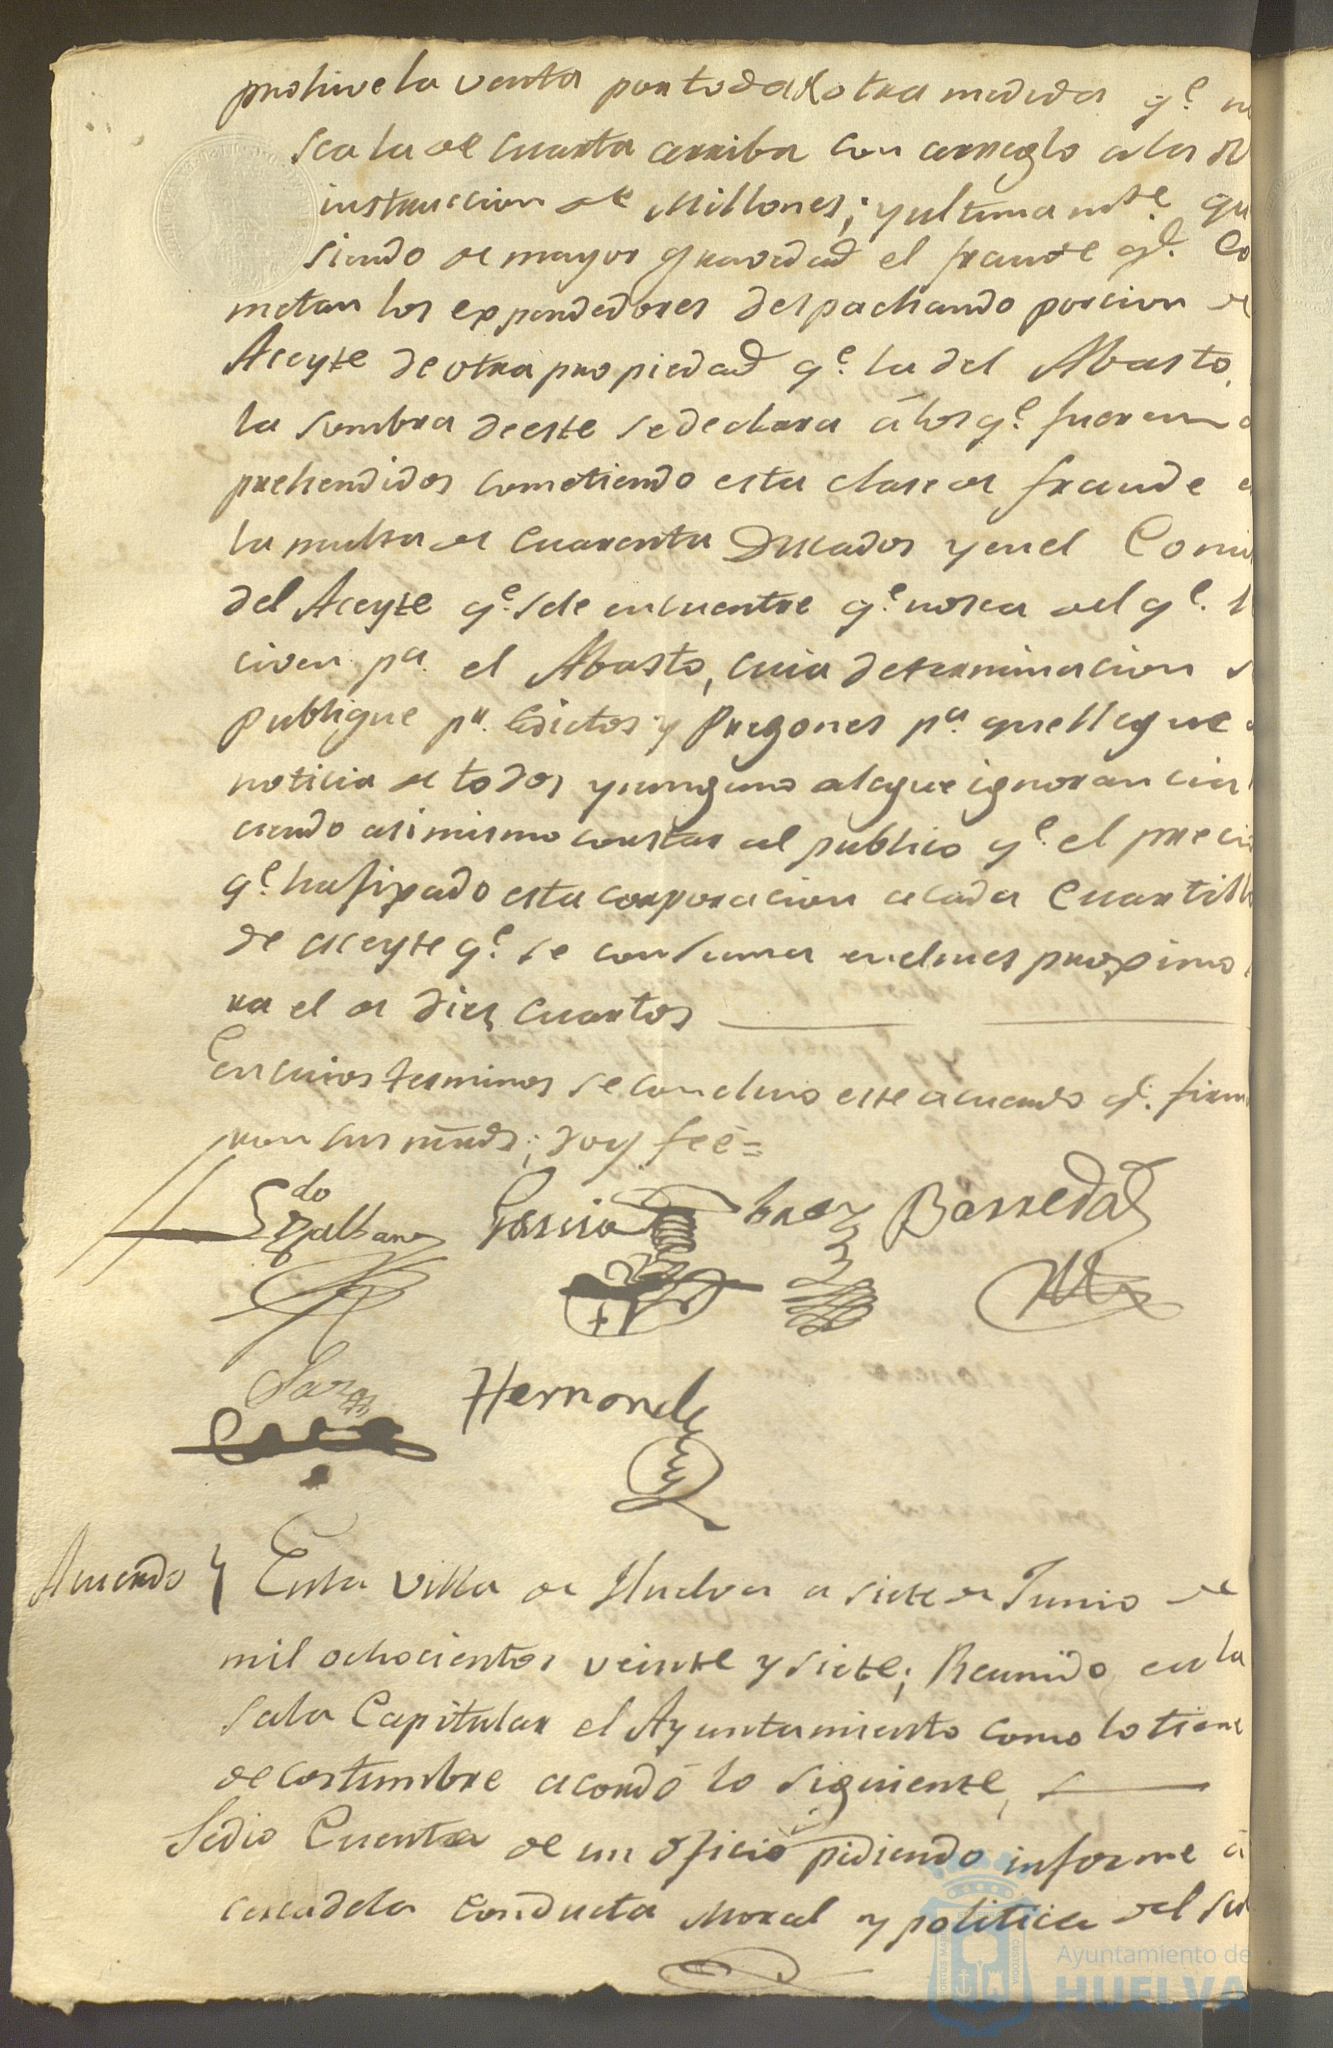 prohive la venta por toda otra medida q.e n
sea la de cuarta arriba con arreglo a la R
instruccion de Millones; y ultimam.te qu
siendo de mayor gravedad el fraude q.e Co
metan los expendedores despachando porcion de
Aceyte de otra propiedad q.e la del Abasto,
la sombra de este se declara á los q.e fueren a
prehendidos cometiendo esta clase de fraude
la multa de Cuarenta Ducados y en el Comi
del Aceyte q.e se le encuentre q.e no sea del q.e
civen p.a el Abasto, cuia determinacion s
publique p.r Edictos y Pregones p.a que llegue
noticia de todos y ninguno alegue ignorancia
ciendo asimismo constar al publico q.e el preci
q.e ha fixado esta corporacion a cada Cuartill
de aceyte q.e se consuma en el mes proximo
ra el de diez cuartos
En cuios terminos se concluio este acuerdo q.e firm
ron sus mrds; doy fee=
Garcia Barreda
Hernandz
Acuerdo } En la Villa de Huelva a siete de Junio de
mil ochocientos veinte y siete; Reunido en la
Sala Capitular el Ayuntamiento como lo tiene
de costumbre acordó lo siguiente,
Se dio Cuenta de un oficio pidiendo informe á
cerca de la Conducta Moral y politica del
Ayuntamiento de
HUELVA